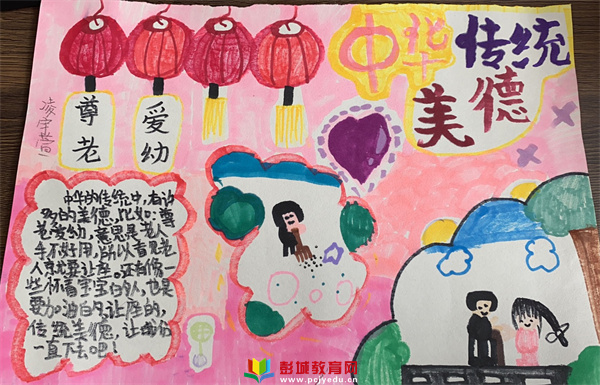 中华传统
美德
尊老
爱幼
中华的传统中，有许
多的美德，比如：尊
老爱幼，意思是老人
手不好用，所以看见老
人就要让座。还有你一
些怀着宝宝的人，也是
要加油的，让座的，
传统美德，让我们
一直下去吧！
彭城教育网
www.pcjyedu.cn